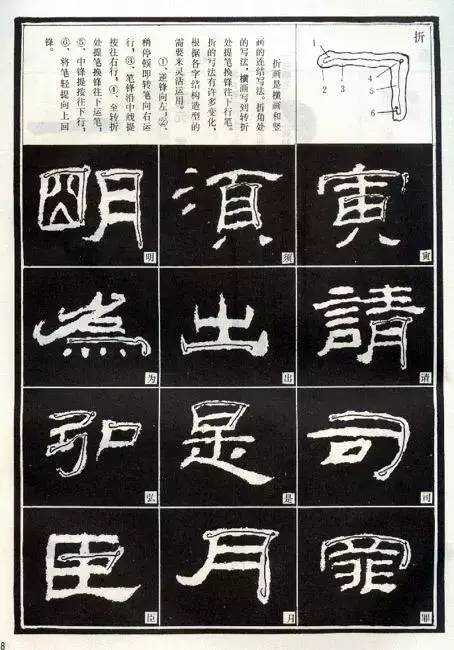 折
1
2
3
4
5
6
折画是横画和竖
画的连结写法。折角处
的写法，横画写到转折
处提笔换锋往下行笔。
折的写法有许多变化，
根据各字结构造型的
需要来灵活运用。
①、逆锋向左，②、
稍停顿即转笔向右运
行，③、笔锋沿中线提
按往右行，④、至转折
处提笔换锋往下运笔，
⑤、中锋提按往下行，
⑥、将笔轻提向上回
锋。
寅
寅
請
请
司
司
罪
罪
須
须
出
出
是
是
月
月
明
明
為
为
弘
弘
臣
臣
8